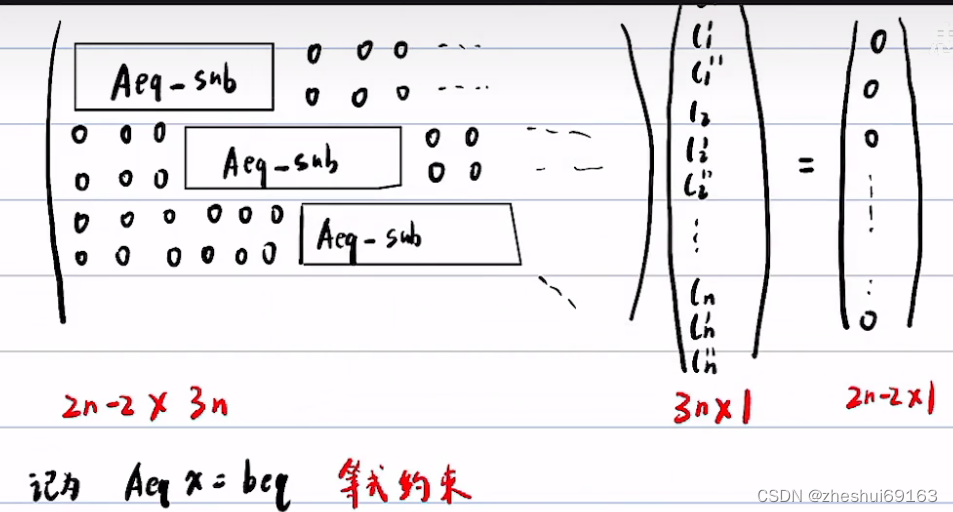 Aeq-sub 0 0 0 ...
0 0 0 ....
0 0 0 Aeq-sub 0 0 ...
0 0 0 0 0 ...
0 0 0 0 0 0 Aeq-sub
0 0 0 0 0 0
l₁'
l₁''
l₂
l₂'
l₂''
⋮
lₙ
lₙ'
lₙ''
=
0
0
0
⋮
0
2n-2 × 3n
3n×1
2n-2×1
记为 Aeq x = beq 等式约束
CSDN @zheshui69163